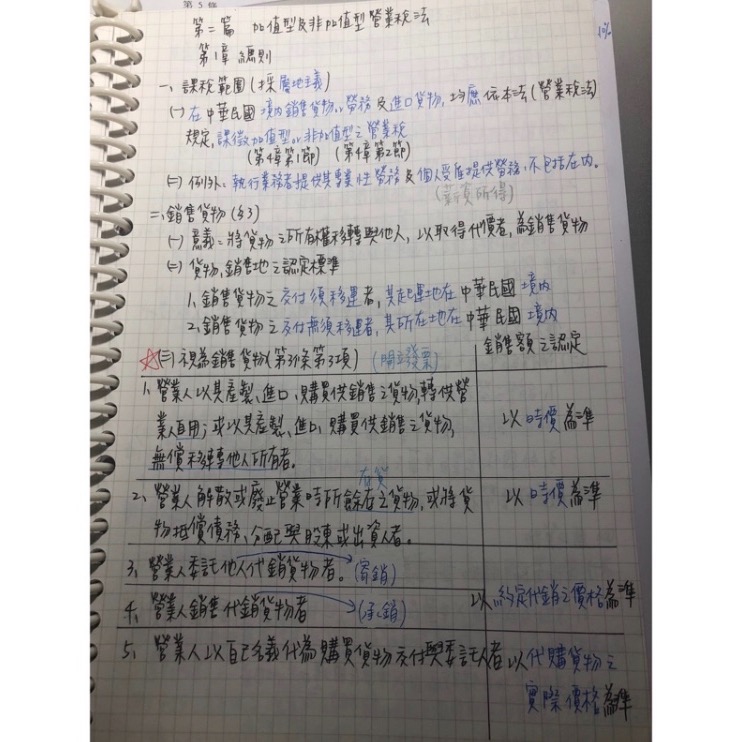 第二篇 加值型及非加值型營業稅法
第1章 總則
一、課稅範圍(採屬地主義)
(一) 在中華民國境內銷售貨物or勞務及進口貨物,均應依本法(營業稅法)
規定,課徵加值型or非加值型之營業稅
(第4章第1節) (第4章第2節)
(二) 例外:執行業務者提供其專業性勞務及個人受雇提供勞務,不包括在內。
(薪資所得)
二、銷售貨物(§3)
(一) 意義:將貨物之所有權移轉與他人,以取得代價者,為銷售貨物
(二) 貨物,銷售地之認定標準
1、銷售貨物之交付須移運者,其起運地在中華民國境內
2、銷售貨物之交付無須移運者,其所在地在中華民國境內
☆(三) 視為銷售貨物(第3條第3項) (開立發票) 銷售額之認定
1、營業人以其產製、進口、購買供銷售之貨物,轉供營
業人自用;或以其產製、進口、購買供銷售之貨物, 以時價為準
無償移轉他人所有者。
存貨
2、營業人解散或廢止營業時所餘存之貨物,或將貨 以時價為準
物抵償債務、分配與股東或出資人者。
3、營業人委託他人代銷貨物者。(寄銷)
以約定代銷之價格為準
4、營業人銷售代銷貨物者 (承銷)
5、營業人以自己名義代為購買貨物交付與委託人者 以代購貨物之
實際價格為準